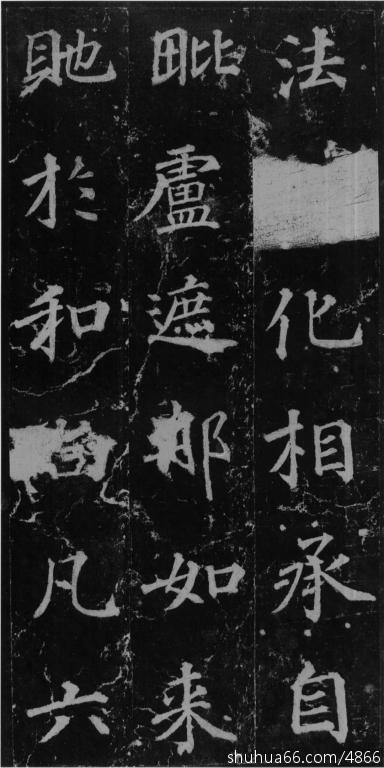 法化相承自
毗盧遮那如来
貤於和尚凡六
shuhua66.com/4866